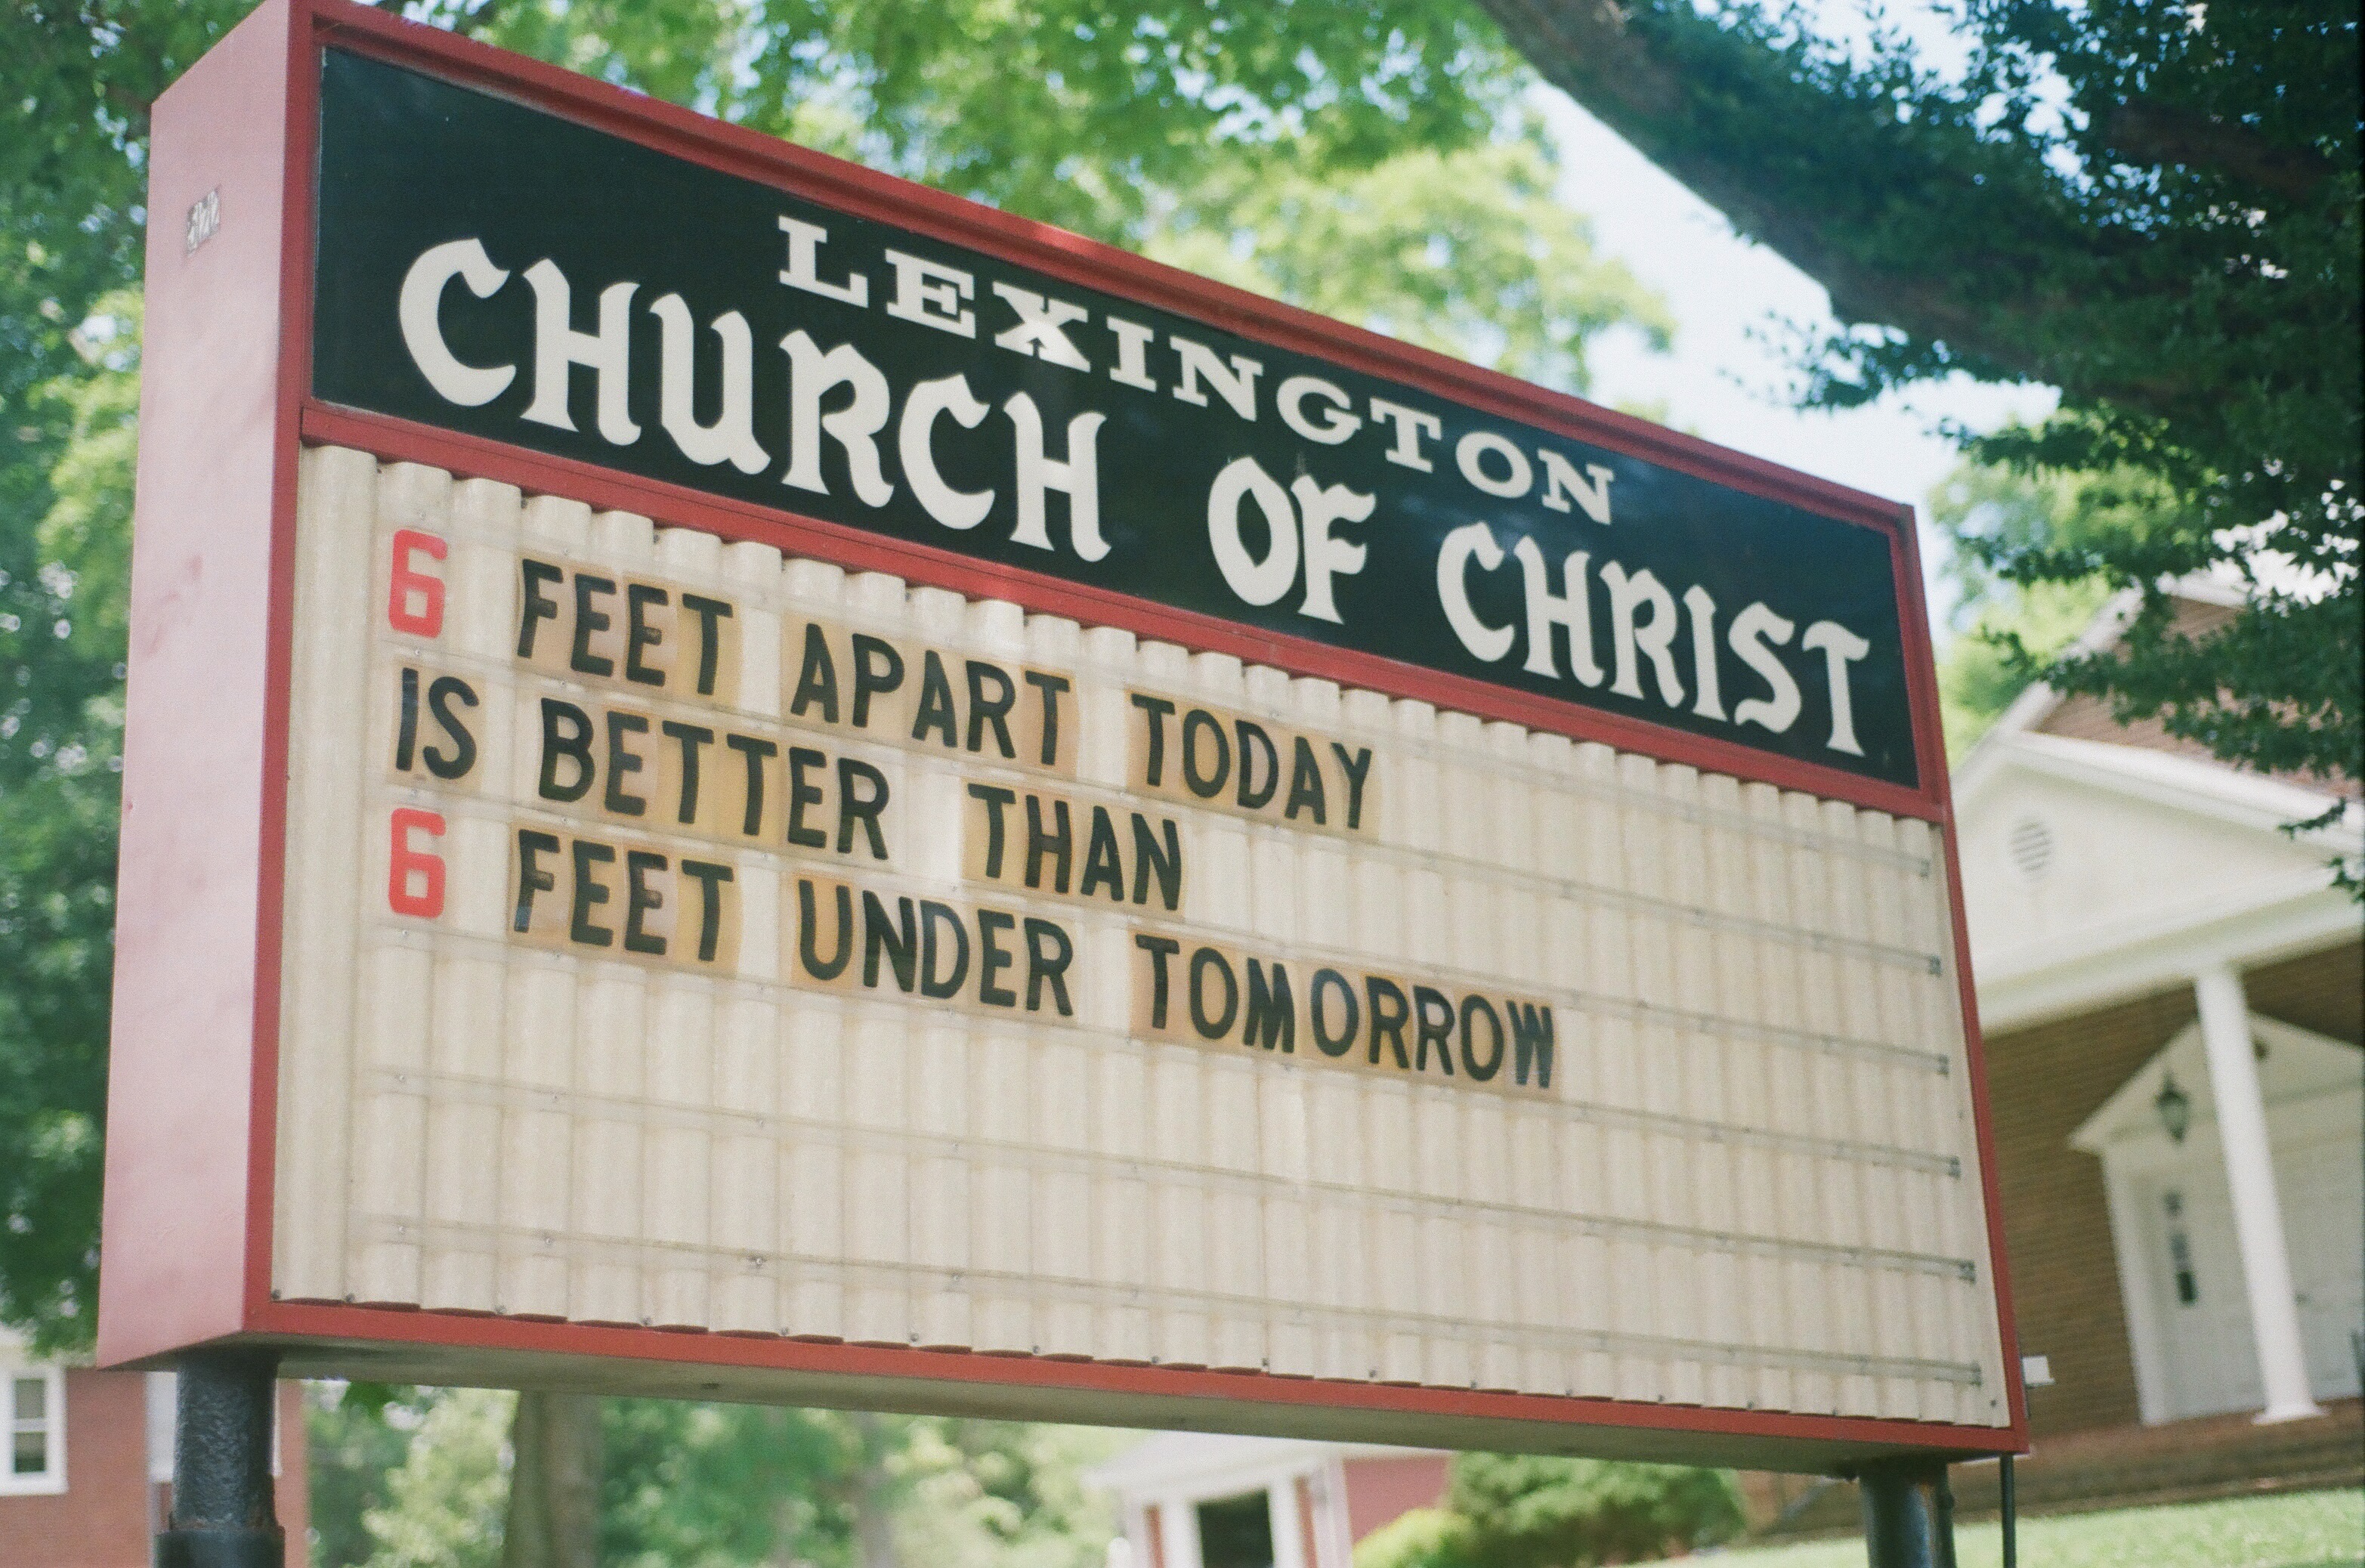 LEXINGTON
CHURCH OF CHRIST
6 FEET APART TODAY
IS BETTER THAN
6 FEET UNDER TOMORROW